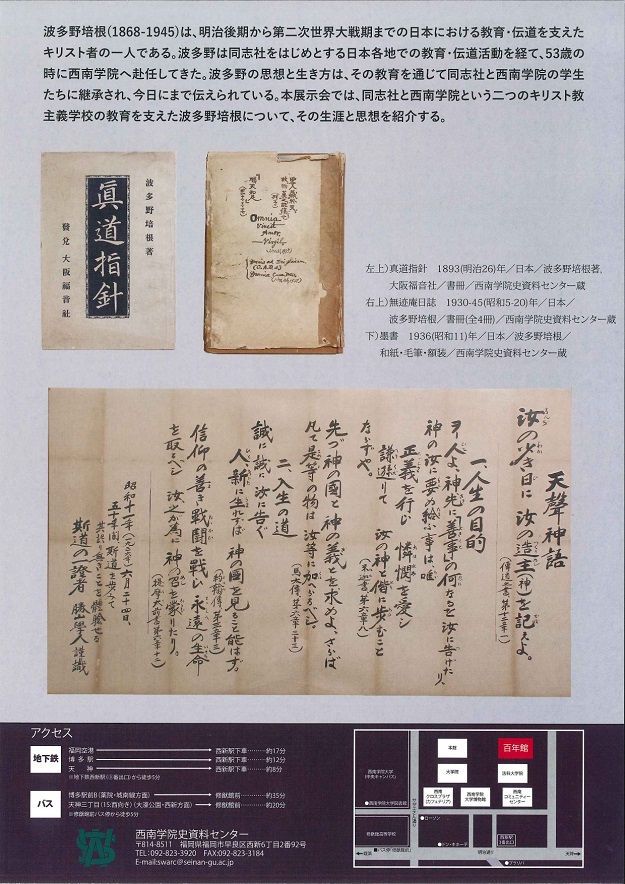 波多野培根(1868-1945)は、明治後期から第二次世界大戦期までの日本における教育・伝道を支えた
キリスト者の一人である。波多野は同志社をはじめとする日本各地での教育・伝道活動を経て、53歳の
時に西南学院へ赴任してきた。波多野の思想と生き方は、その教育を通じて同志社と西南学院の学生
たちに継承され、今日にまで伝えられている。本展示会では、同志社と西南学院という二つのキリスト教
主義学校の教育を支えた波多野培根について、その生涯と思想を紹介する。
波多野培根著
眞道指針
發兌 大阪福音社
Omnia
Vincit
Amor.
Virgil
左上)真道指針 1893(明治26)年／日本／波多野培根著,
大阪福音社／書冊／西南学院史資料センター蔵
右上)無迹庵日誌 1930-45(昭和5-20)年／日本／
波多野培根／書冊(全4冊)／西南学院史資料センター蔵
下)墨書 1936(昭和11)年／日本／波多野培根／
和紙・毛筆・額装／西南学院史資料センター蔵
天聲神語
汝の少き日に 汝の造主(神)を記えよ。
(傳道之書 第十二章一)
一人生の目的
人よ、神先に善事の何なるを汝に告げたり、
神の汝に要め給ふ事は唯
正義を行ひ 憐憫を愛し
謙遜りて 汝の神と偕に歩むこと
ならずや。
(米迦書 第六章八)
先づ神の國と神の義とを求めよ、さらば
凡て是等の物は汝等に加へらるべし。
(馬太傳 第六章三十三)
二、人生の道
誠に誠に汝に告ぐ
人新に生れずば 神の國を見ること能はず。
(約翰傳 第三章三)
信仰の善き戰鬪を戰い 永遠の生命
を取るべし 汝之が為に神の召を蒙りたり。
(提摩太前書 第六章十二)
昭和十一年(一九三六)六月二十四日、
五十年間斯道を歩みて
斯道の證者 勝山學人謹識
アクセス
地下鉄
福岡空港 西新駅下車………約17分
博多駅 西新駅下車………約12分
天神 西新駅下車………約8分
※地下鉄西新駅(①番出口)から徒歩5分
バス
博多駅前B(薬院・城南線方面) 修猷館前………約35分
天神三丁目(15:西向き)(大濠公園・西新方面) 修猷館前………約20分
※修猷館前バス停から徒歩5分
西南学院史資料センター
〒814-8511 福岡県福岡市早良区西新6丁目2番92号
TEL:092-823-3920 FAX:092-823-3184
E-mail:swarc@seinan-gu.ac.jp
西南学院大学
(中央キャンパス)
本館
百年館
大学院
法科大学院
西南
クロスプラザ
(カフェテリア)
西南学院
大学博物館
西南
コミュニティー
センター
●西南学院大学図書館
サザエさん通り
●ローソン
修猷館高等学校
●ドン・キホーテ
西新駅
1番出口
●バス停「修猷館前」
明治通り
姪浜
●プラリバ
天神